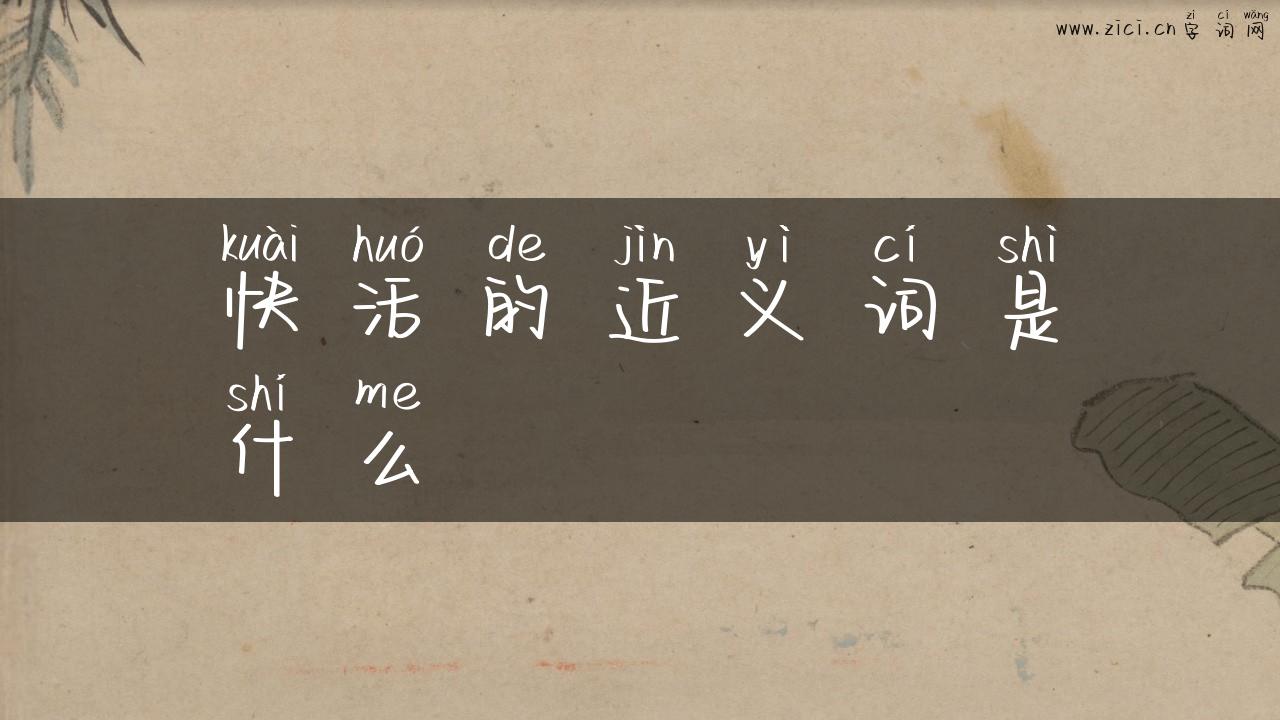 zì cí wǎng
www.zici.cn 字词网
kuài huó de jìn yì cí shì
快活的近义词是
shí me
什么